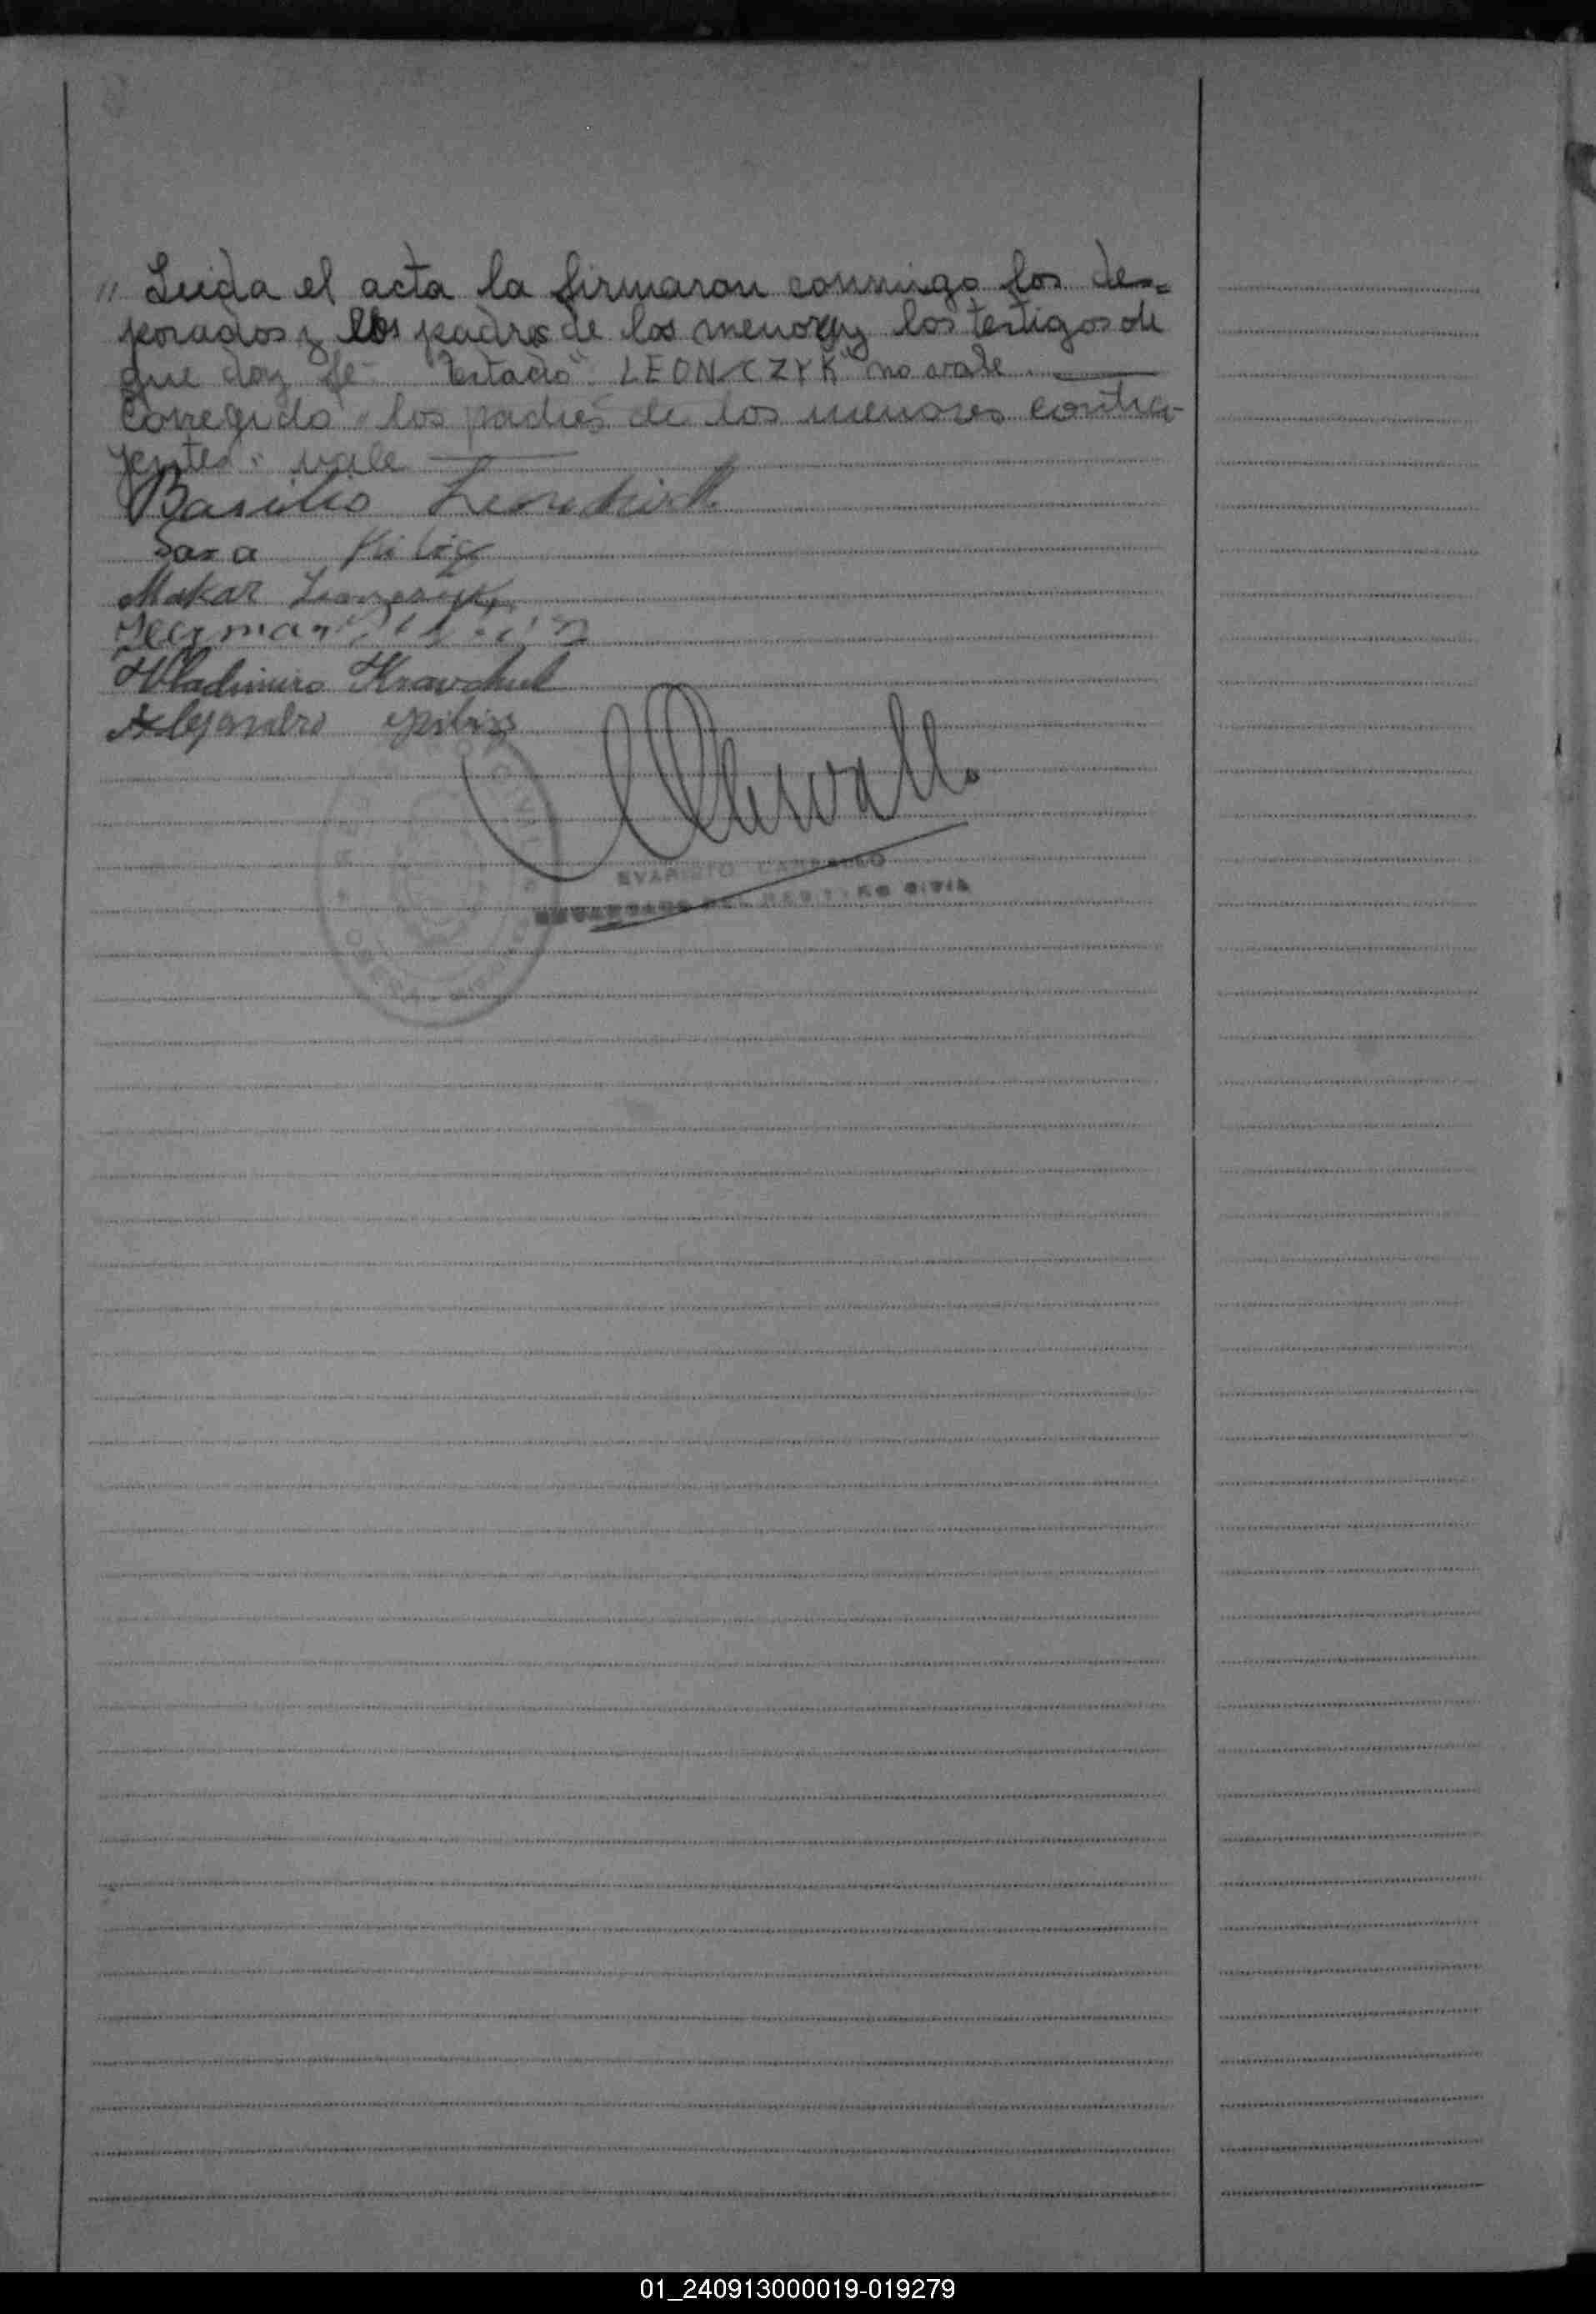 " Leida el acta la firmaron conmigo los des-
posados y los padres de los menores y los testigos de
que doy fé Testado "LEONCZYK" no vale.
Corregido "los padres de los menores contra-
yentes" vale
Basilio
Sara
Makar
Vladimiro Kravchuk
Alejandro
EVARISTO CARBALLO
ENCARGADO DEL REGISTRO CIVIL
01_240913000019-019279